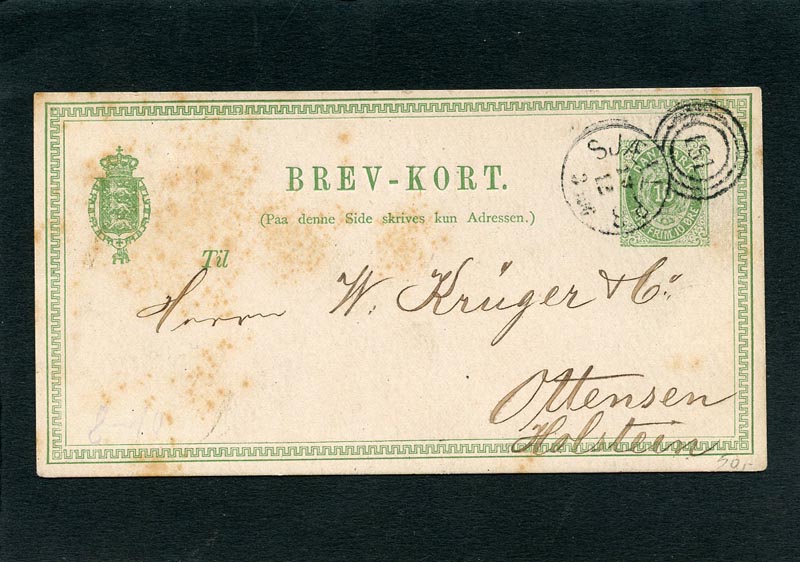 BREV-KORT.
(Paa denne Side skrives kun Adressen.)
Til
Herrn W. Krüger & Co.
Ottensen
Holstein
SJÆ
12
197
FRIM. 10 ØRE
50,-